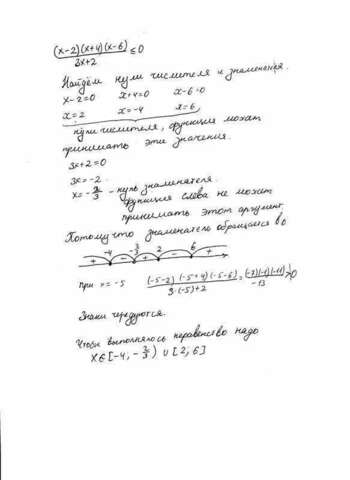 (x-2)(x+4)(x-6)/3x+2 ≤0
Найдём нули числителя и знаменателя.
x-2=0 x+4=0 x-6=0
x=2 x=-4 x=6
нули числителя, функция может
принимать эти значения.
3x+2=0
3x=-2
x=-2/3 - нуль знаменателя.
функция слева не может
принимать этот аргумент.
Потому что знаменатель обращался в 0
-4 -2/3 2 6
+ - + - +
при x=-5 (-5-2)(-5+4)(-5-6)/3·(-5)+2 = (-7)(-1)(-11)/-13 >0
Знаки чередуются.
Чтобы выполнялось неравенство надо
x∈[-4; -2/3) ∪ [2; 6]